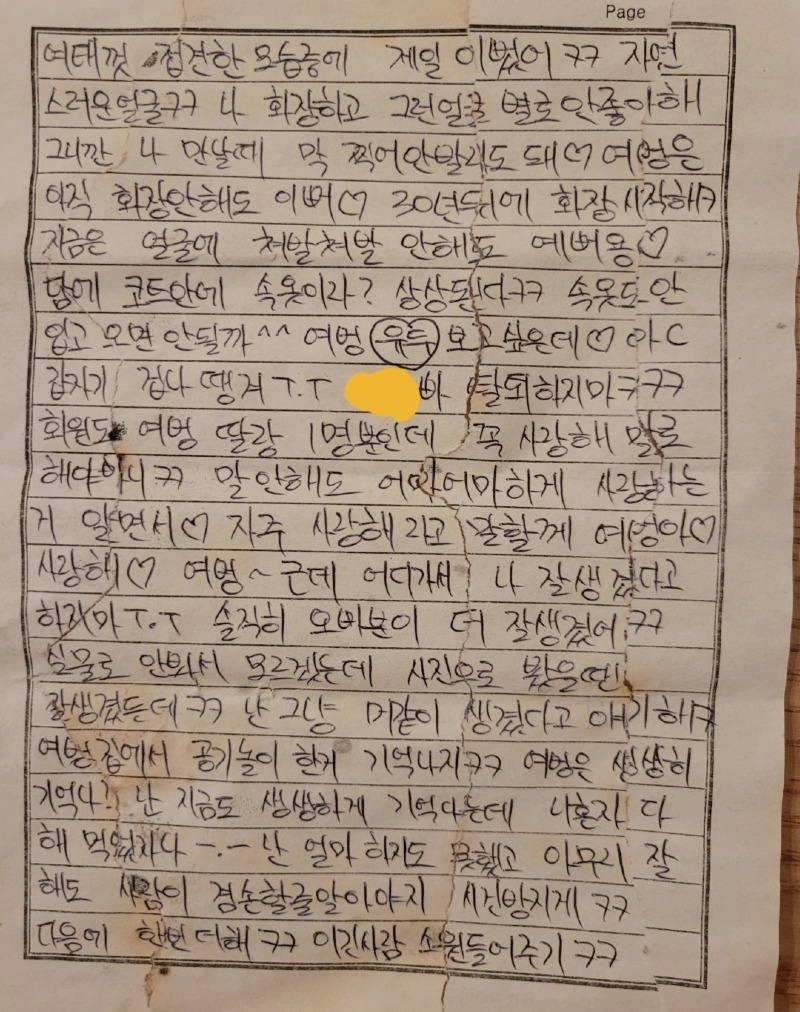 Page
여태껏 접견한 모습중에 제일 이뻤어 ㅋㅋ 자연
스러운얼굴ㅋㅋ 나 화장하고 그런얼굴 별로안좋아해
그니깐 나 만날때 막 찍어안발라도 돼♡ 여벙은
아직 화장안해도 이뻐♡ 30년뒤에 화장시작해ㅋ
지금은 얼굴에 쳐발쳐발 안해도 예뻐용♡
담에 코트안에 속옷이라? 상상된다ㅋㅋ 속옷도 안
입고 오면 안될까^^ 여벙 유두 보고싶은데♡ 아
갑자기 겁나 땡겨 T.T 빠 탈퇴하지마ㅋㅋㅋ
회원도 여벙 딸랑 1명뿐인데 꼭 사랑해 말로
해야아니ㅋㅋ 말안해도 어마어마하게 사랑하는
거 알면서♡ 자주 사랑해 라고 말할께 여벙아♡
사랑해♡ 여벙~ 근데 어디가서 나 잘생겼다고
하지마 T.T 솔직히 오빠분이 더 잘생겼어ㅋㅋ
실물로 안봐서 모르겠는데 사진으로 봤을땐
잘생겼든데ㅋㅋ 난 그냥 머같이 생겼다고 얘기해ㅋ
여벙집에서 공기놀이 한거 기억나지ㅋㅋ 여벙은 생생히
기억나? 난 지금도 생생하게 기억나는데 나혼자 다
해 먹었자나 -.- 난 얼마 하지도 못했고 아무리 잘
해도 사람이 겸손할줄알아야지 시건방지게 ㅋㅋ
다음에 한번 더해ㅋㅋ 이긴사람 소원들어주기ㅋㅋ